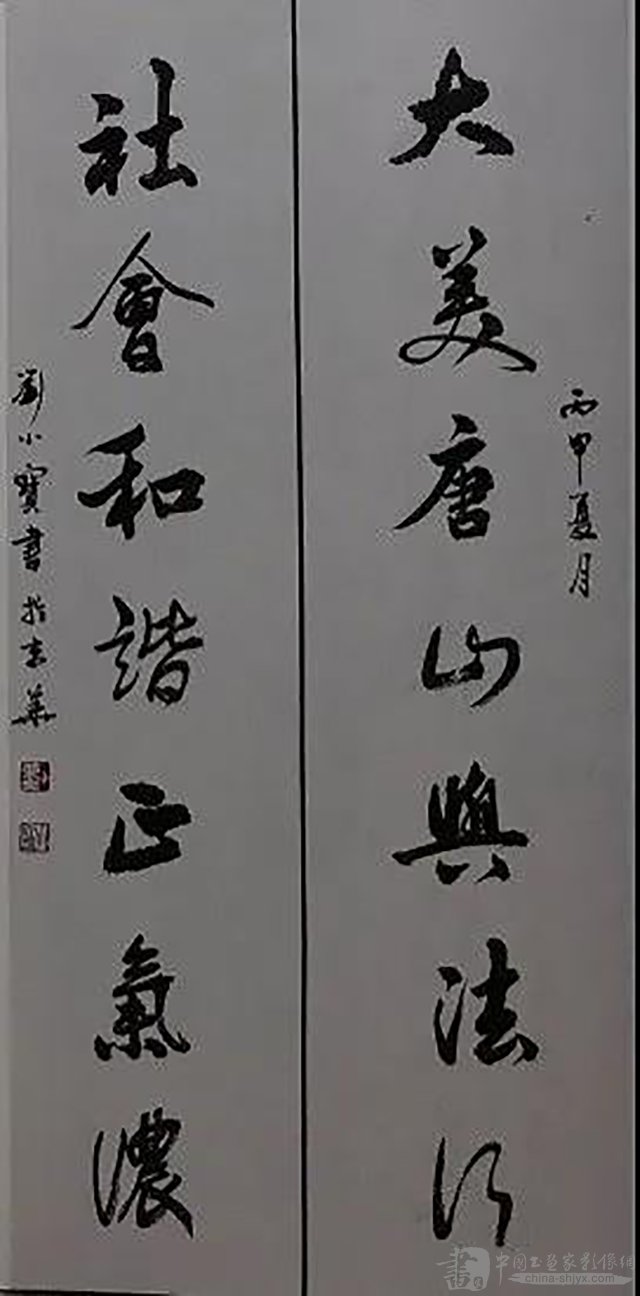 丙申夏月
大美唐山與法行
社會和諧正氣濃
劉小寶書於京華
書 中國书画家影像網
china-shjyx.com